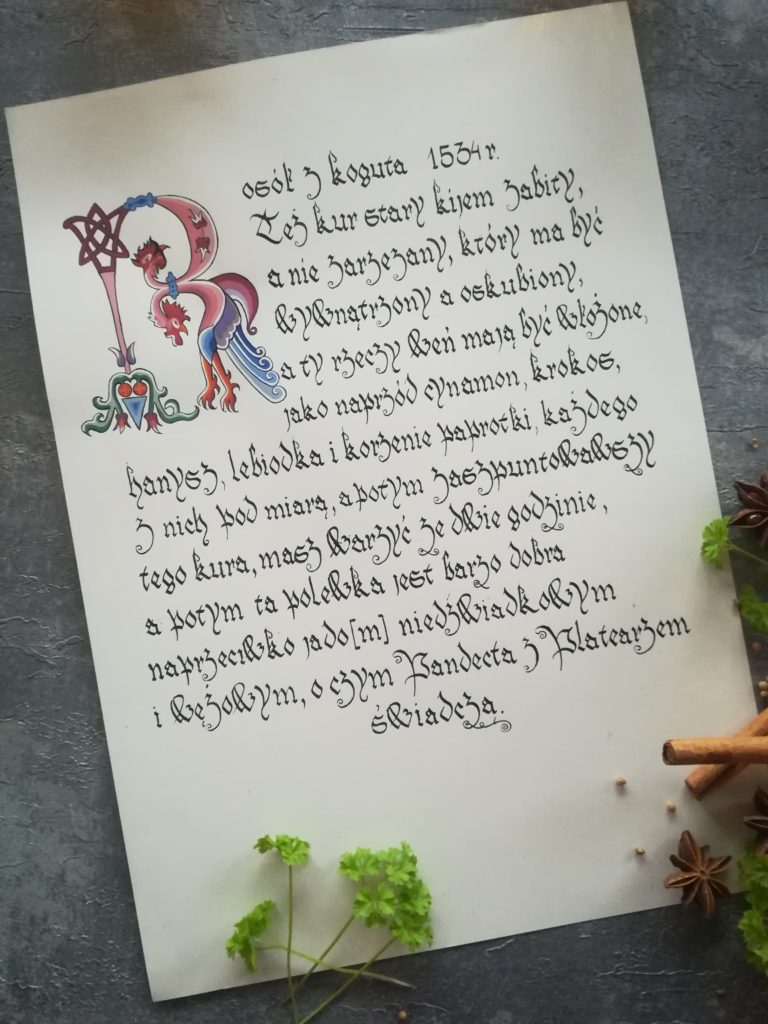 Rosók z koguta 1534 r.
Też kur stary kijem zabity,
a nie zarzezany, który ma być
wywnątrzony a oskubiony,
a ty rzeczy weń mają być włożone,
jako naprzód cynamon, krokos,
hanysz, lebiodka i korzenie paprotki, każdego
z nich pod miarą, a potym zaszpuntowawszy
tego kura, masz warzyć ze dwie godzinie,
a potym ta polewka jest barzo dobra
naprzeciwko jado[m] niedźwiadkowym
i wężowym, o czym Pandecta z Platearzem
świadczą.